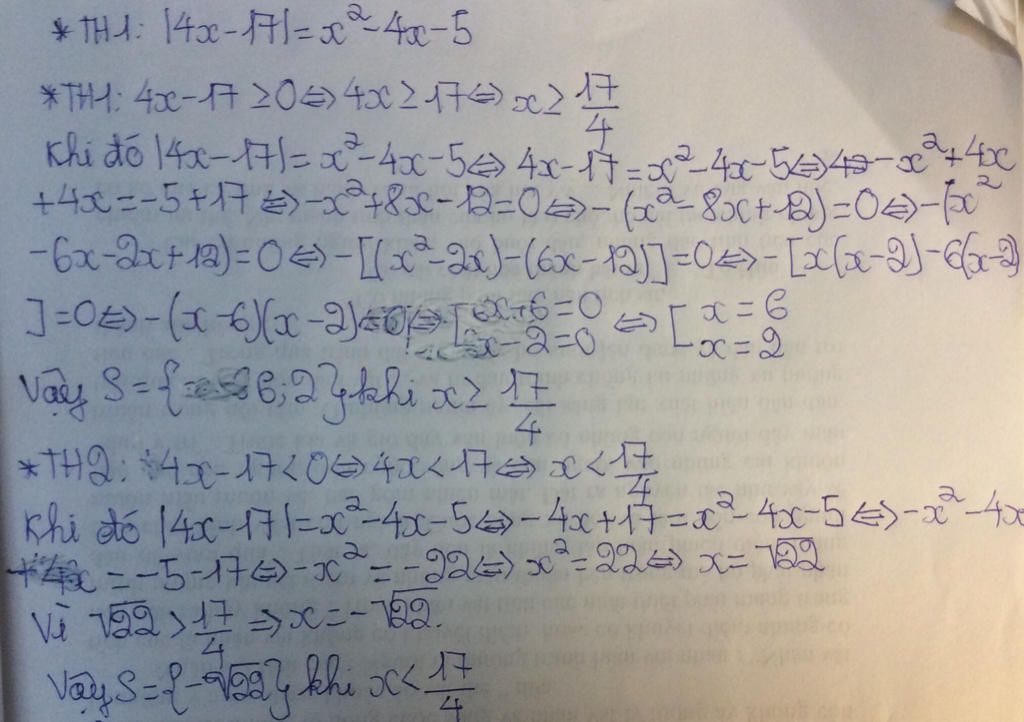 *TH1: |4x-17| = x²-4x-5
*TH1: 4x-17 ≥ 0 ⇔ 4x ≥ 17 ⇔ x ≥ 17/4
Khi đó |4x-17| = x²-4x-5 ⇔ 4x-17 = x²-4x-5 ⇔ -x²+4x
+4x = -5+17 ⇔ -x²+8x-12 = 0 ⇔ -(x²-8x+12) = 0 ⇔ -(x²
-6x-2x+12) = 0 ⇔ -[(x²-2x)-(6x-12)] = 0 ⇔ -[x(x-2)-6(x-2)
] = 0 ⇔ -(x-6)(x-2) ⇔ [x-6 = 0 ⇔ [x = 6
x-2 = 0 x = 2
Vậy S = {6; 2} khi x ≥ 17/4
*TH2: 4x-17 < 0 ⇔ 4x < 17 ⇔ x < 17/4
Khi đó |4x-17| = x²-4x-5 ⇔ -4x+17 = x²-4x-5 ⇔ -x²-4x
+4x = -5-17 ⇔ -x² = -22 ⇔ x² = 22 ⇔ x = √22
Vì √22 > 17/4 ⇒ x = -√22.
Vậy S = {-√22} khi x < 17/4